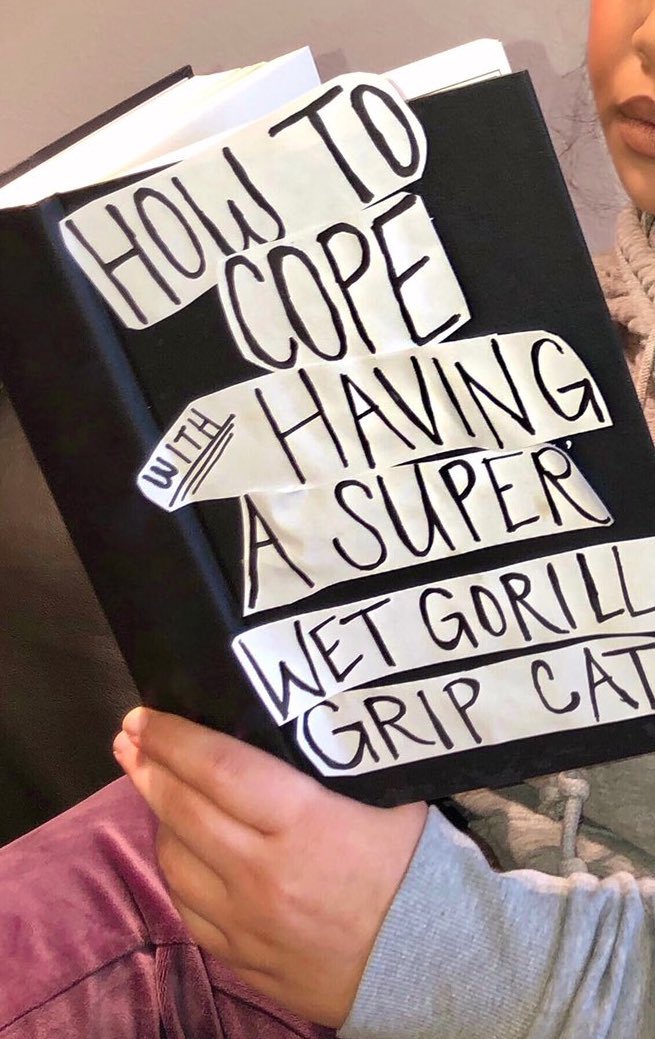 HOW TO
COPE
WITH HAVING
A SUPER
WET GORILL
GRIP CAT